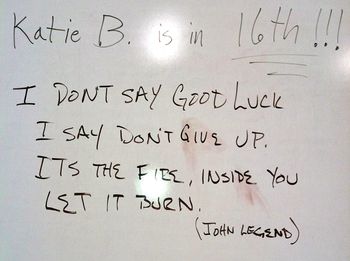 Katie B. is in 16th!!!
I DONT SAY GOOD LUCK
I SAY DON'T GIVE UP.
ITS THE FIRE, INSIDE YOU
LET IT BURN.
(JOHN LEGEND)